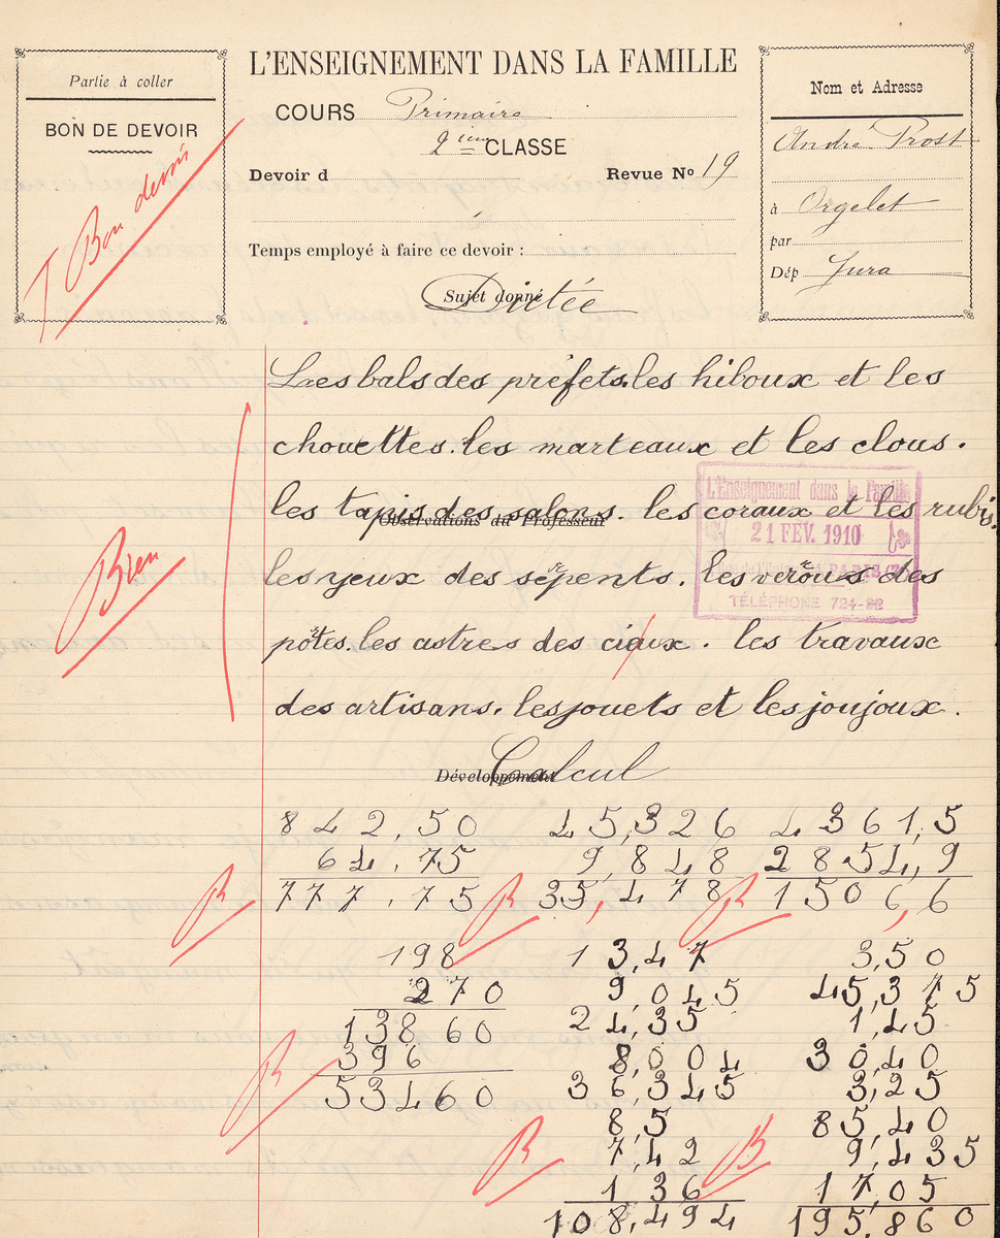 Partie à coller
BON DE DEVOIR
T Bon devoir
L'ENSEIGNEMENT DANS LA FAMILLE
COURS Primaire
2ième CLASSE
Devoir d
Revue No 19
Temps employé à faire ce devoir :
Sujet donné
Dictée
Nom et Adresse
André Prost
à Orgelet
par
Dép Jura
Les bals des préfets. les hiboux et les
chouettes. les marteaux et les clous.
les tapis des salons. les coraux et les rubis.
Observations du Professeur
les yeux des sepents. les verous des
potes. les astres des cieaux. les travaux
des artisans. les jouets et les joujoux.
Bien
L'Enseignement dans la Famille
21 FEV. 1910
PARIS
TÉLÉPHONE 724-92
Développement
Calcul
842,50 45,326 4361,5
64,75 9,848 2854,9
777,75 35,478 1506,6
B B B
198
270
13860
396
53460
B
13,47
9,045
24,35
8,004
36,345
8,5
7,42
1 36
108,494
B
3,50
45,375
1,45
30,40
3,25
85,40
9,435
17,05
195,860
B